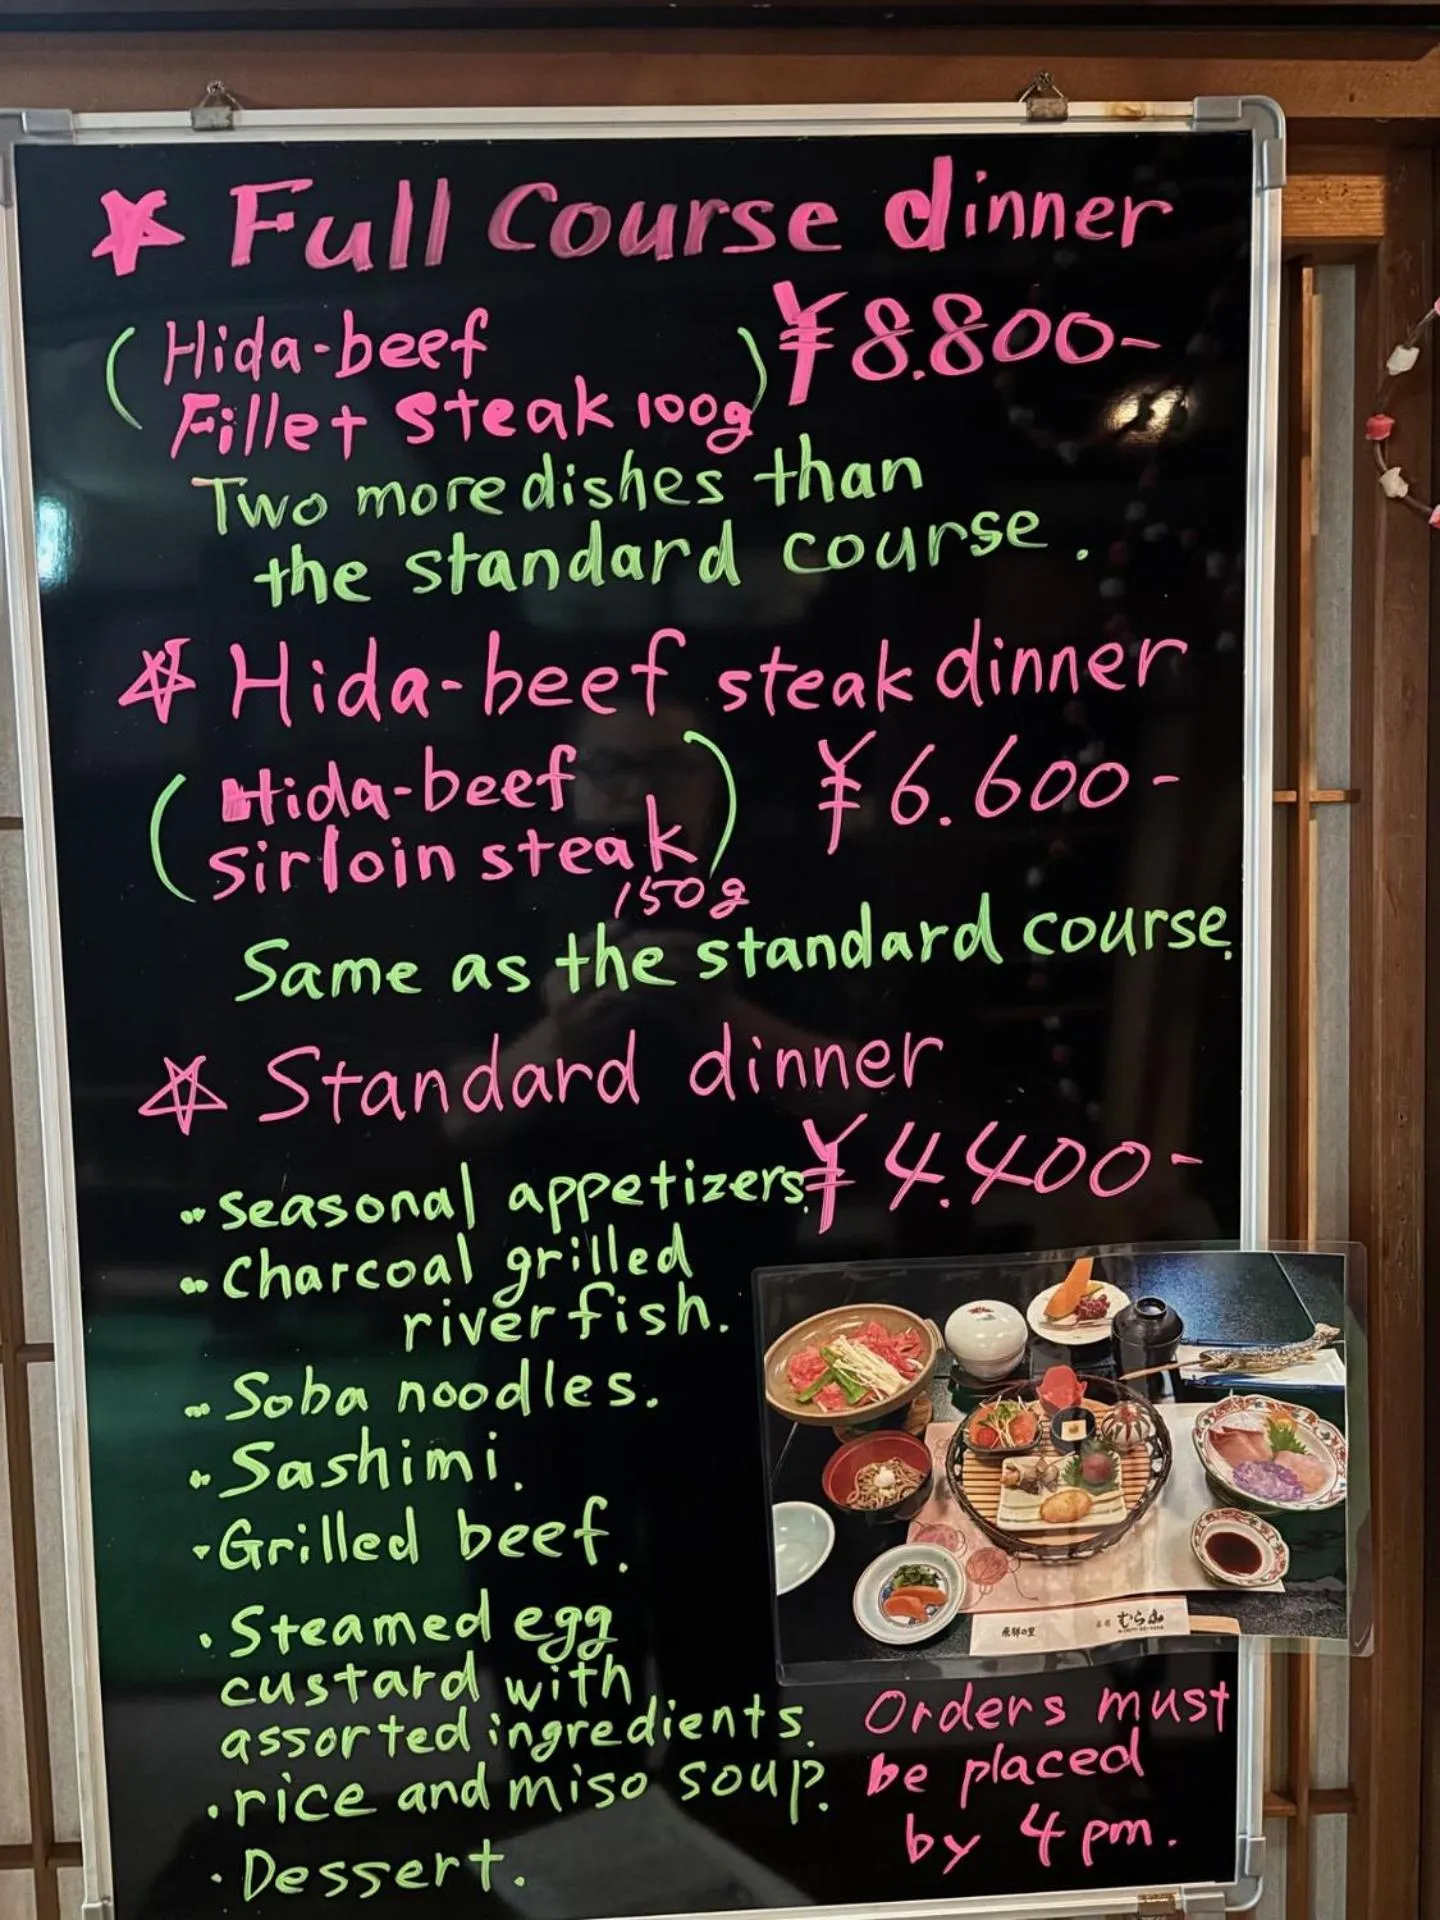 ☆ Full Course dinner
(Hida-beef
Fillet steak 100g) ¥8.800-
Two more dishes than
the standard course.
☆ Hida-beef steak dinner
(Hida-beef
sirloin steak) ¥6.600-
150g
Same as the standard course.
☆ Standard dinner
¥4.400-
・seasonal appetizers.
・Charcoal grilled
river fish.
・Soba noodles.
・Sashimi.
・Grilled beef.
・Steamed egg
custard with
assorted ingredients.
・rice and miso soup.
・Dessert.
飛騨の里
むら山
Orders must
be placed
by 4 pm.